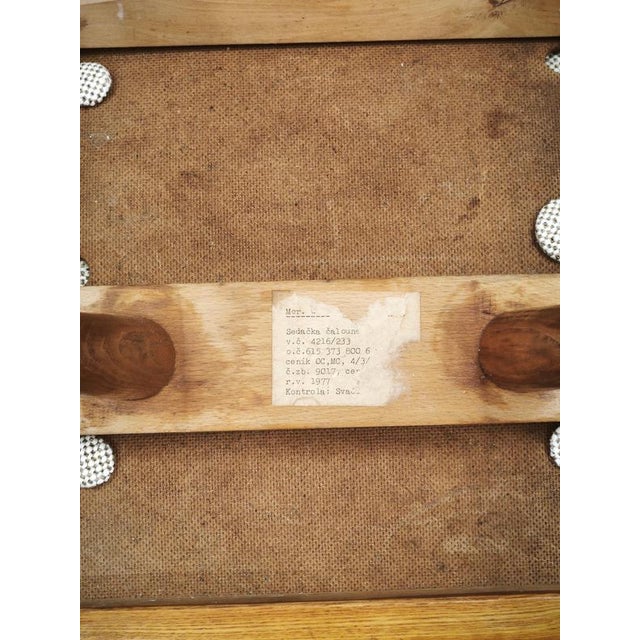 Mor.
Sedačka čaloun
v.č. 4216/233
o.č.615 373 800 6
ceník OC,MC, 4/3/
č.zb. 9017, cen
r.v. 1977
Kontrola: Svač